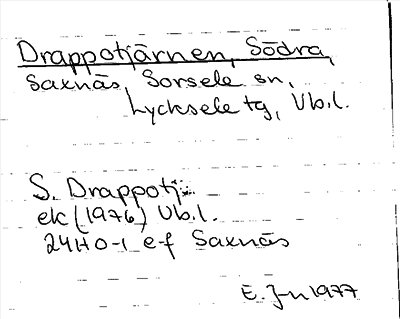 Drappotjärnen, Södra,
Saxnäs, Sorsele sn,
Lycksele tg, Vb.l.
S. Drappotj.
ek (1976) Vb.l.
24H 0-1 e-f Saxnäs
E. J-n 1977